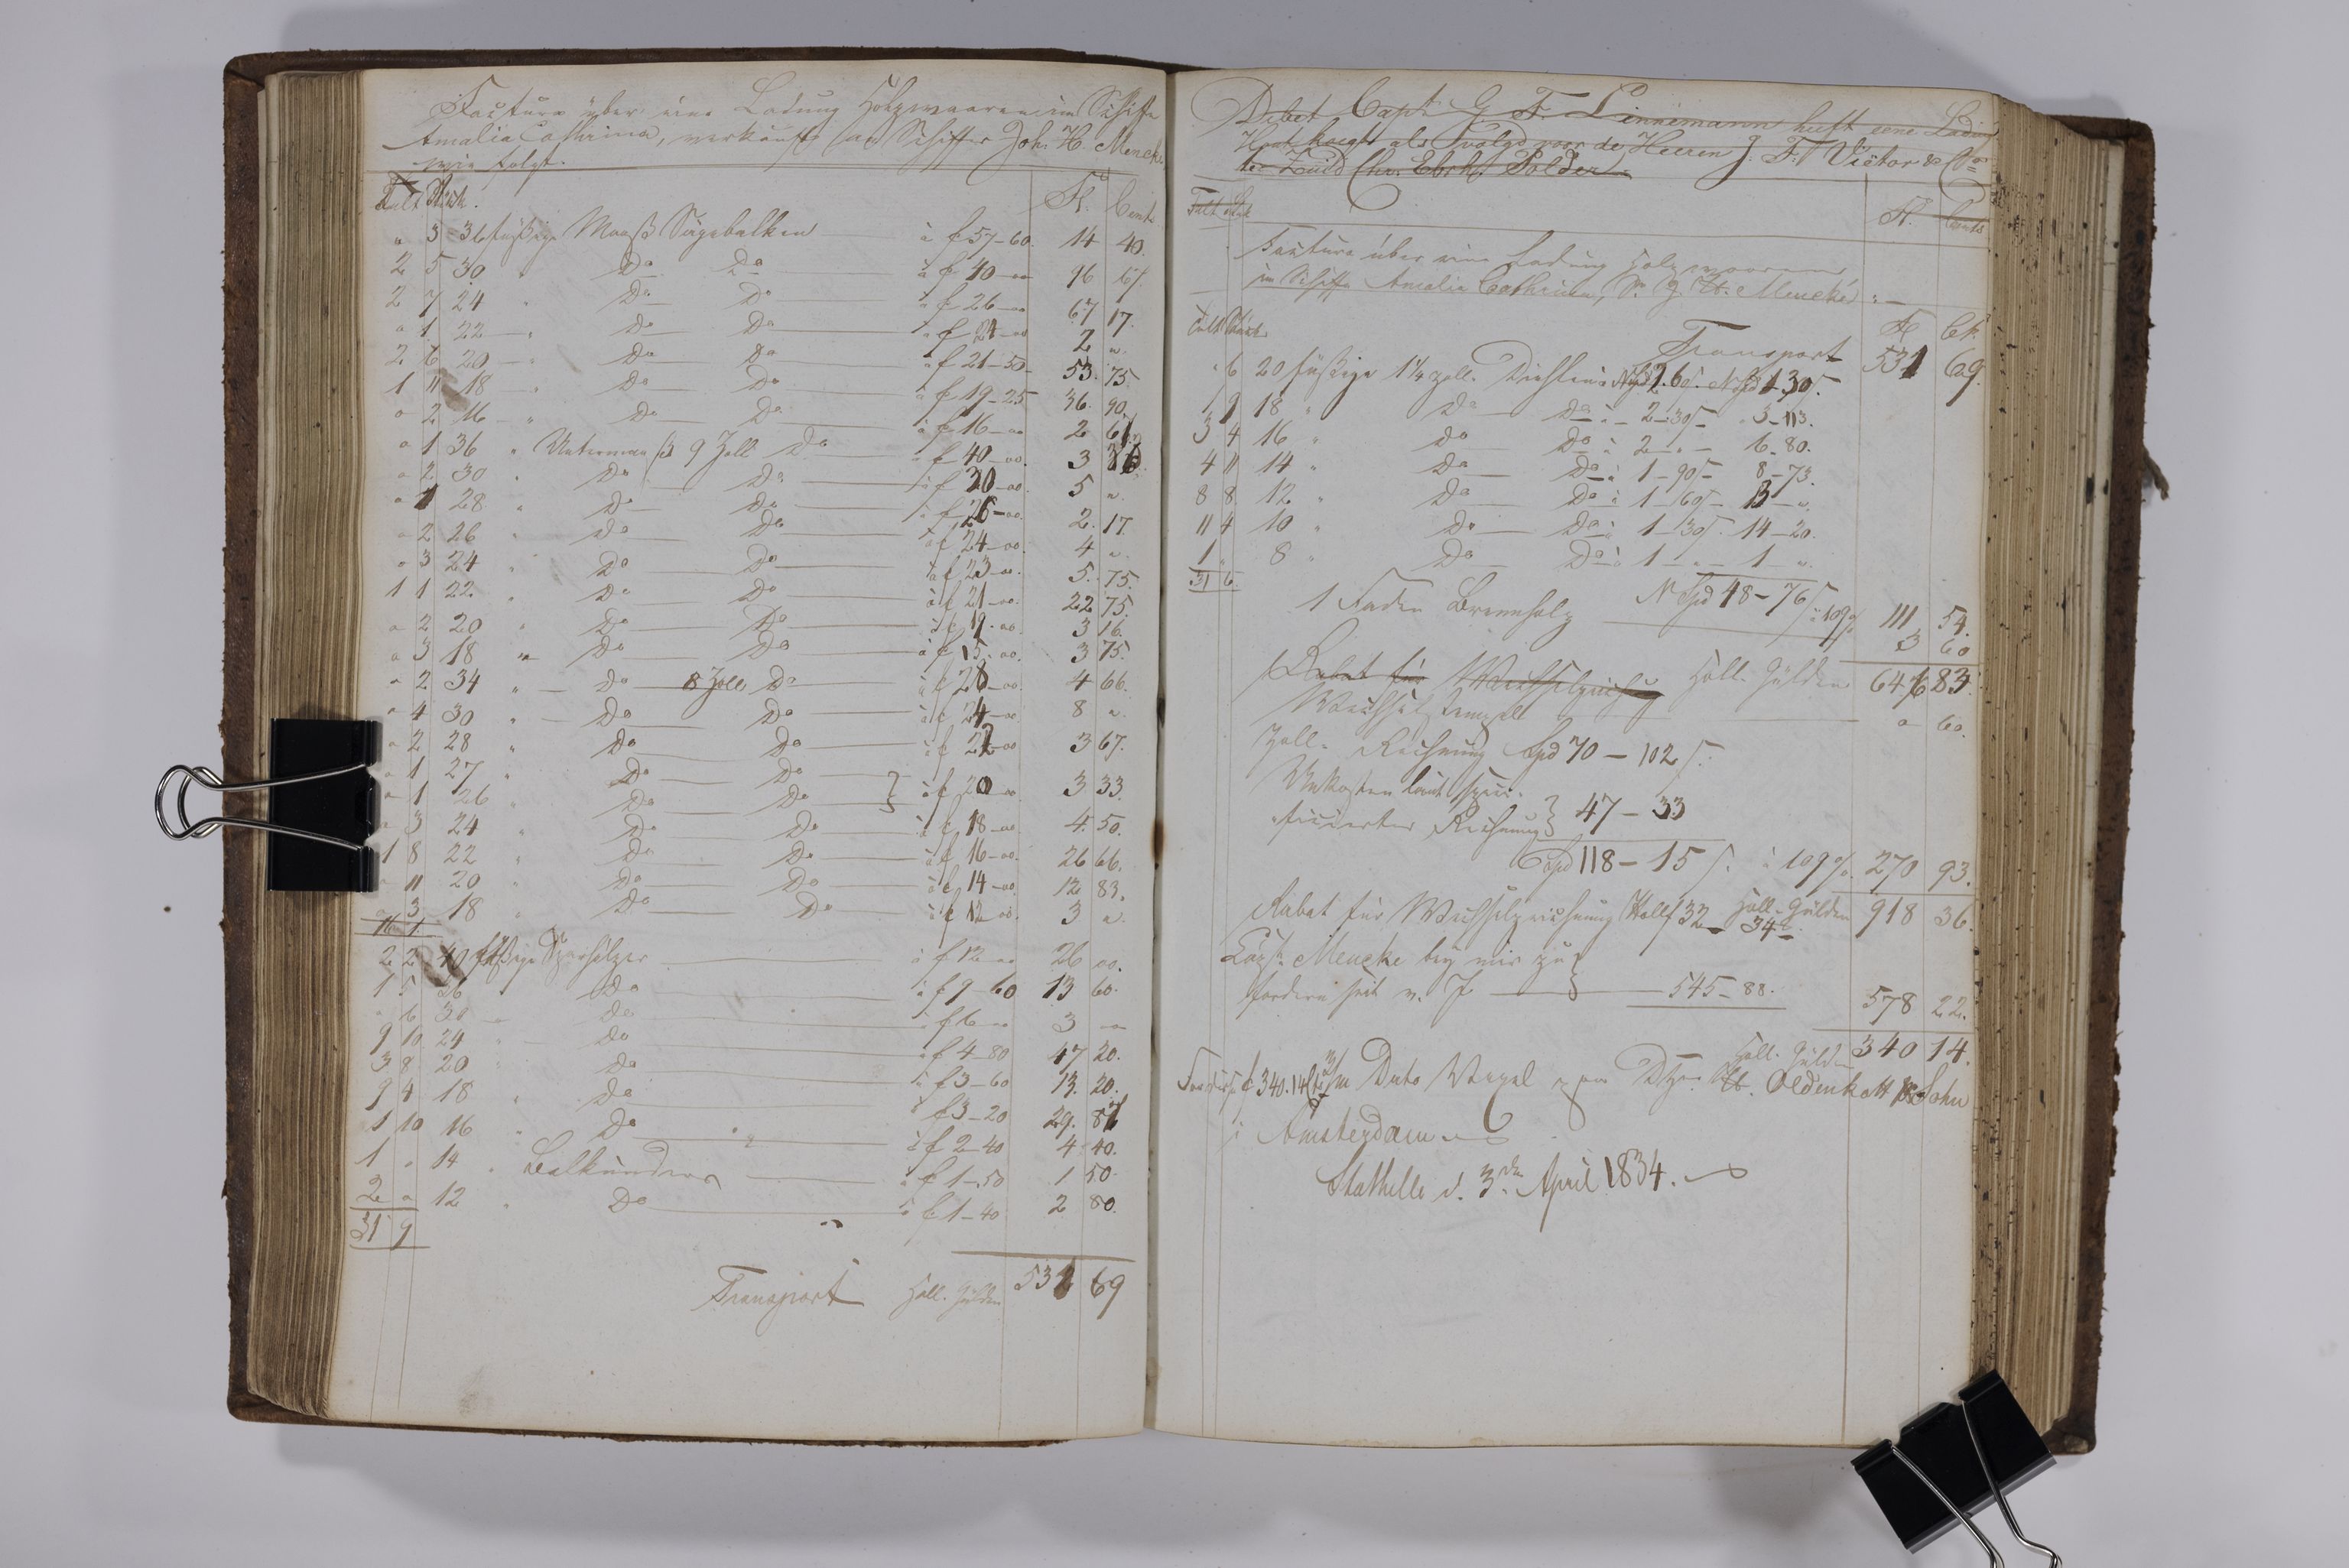 Factura über eine Ladung Holzwaaren im Schiffe
Amalia Cathrina, verkauft an Schiffer Joh. H. Mencke
wie folgt.
Tult Stück. Fl. Cents
" 3 36 füßige Maaß Sägebalken à f 57-60. 14 40.
2 5 30 " Do Do à f 40-00 96 67.
2 7 24 " Do Do à f 26-00 67 17.
" 1 22 " Do Do à f 24-00 2 "
2 6 20 " Do Do à f 21-50 53. 75.
1 11 18 " Do Do à f 19-25 36. 90.
" 2 16 " Do Do à f 16-00 2 67
" 1 36 " Untermaaß 9 Zoll Do à f 40-00. 3
" 2 30 " Do Do à f 30-00 5 "
" 1 28 " Do Do à f 26-00. 2. 17.
" 2 26 " Do Do à f 24-00. 4 "
" 3 24 " Do Do à f 23-00. 5. 75.
1 1 22. " Do Do à f 21-00. 22 75.
" 2 20 " Do Do à f 19-00. 3 16.
" 3 18 " Do Do à f 15-00. 3 75.
" 2 34 " Do 8 Zoll Do à f 28-00 4 66.
" 4 30 " Do Do à f 24-00 8 "
" 2 28 " Do Do à f 22-00 3 67.
" 1 27 " Do Do
" 1 26 " Do Do } à f 20-00 3 33.
" 3 24 " Do Do à f 18-00 4. 50.
1 8 22 " Do Do à f 16-00. 26 66.
" 11 20 " Do Do à f 14-00. 12 83.
" 3 18 " Do Do à f 12-00. 3 "
16 1
2 2 40 füßige Sparhölzer à f 12-00 26 00.
1 5 36 " Do à f 9-60 13 60.
" 6 30 " Do à f 6-00 3 00
9 10 24 " Do à f 4-80 47 20.
3 8 20 " Do à f 3-60 13. 20.
9 4 18 " Do à f 3-20 29. 87
1 10 16 " Do à f 2-40 4 40.
1 " 14 " Balkunders à f 1-50 1 50.
2 " 12 " Do à f 1-40 2 80.
31 9
Transport Holl. Gülden 531 69
Debet Capt. G. F. Linnemann heeft eene Lading
Hout als volgd voor de Heeren J. F. Victor & Co
Chr. Ebrh. Polder
Tult Stk Fl. Cents
Factura über eine Ladung Holzwaaren
im Schiffe Amalia Cathrina, Sr. J. H. Mencke
Tult Stück Fl. Ct.
Transport 531 69.
" 6 20 füßige 1¼ zoll. Diehlen à NSpd 2.60 NSpd 1-30
1 9 18 " Do Do à 2-30 3-113.
3 4 16 " Do Do à 2-"- 6-80.
4 11 14 " Do Do à 1-90 8-73.
8 8 12 " Do Do à 1-60 13-"
11 4 10 " Do Do à 1-30 14-20.
1 " 8 " Do Do à 1-"- 1-"
31 6 NSpd 48-76 à 109% 111 54.
1 Faden Brennholz 3 60
Rabat für Wechselzeichnung Holl. Gülden 646 83
Wechsel Stempel " 60.
Zoll-Rechnung Spd 70-102
Unkosten laut speci-
ficierter Rechnung } 47-33
Spd 118-15 à 109% 270 93.
Holl. Gülden 918 36.
Rabat für Wechselzeichnung Hollf 32-34
Capt. Mencke bey mir zu
fordern seit v. J. } 545-88. 578 22.
Holl. Gülden 340 14.
f 340.14 3/m Dato Oldenkott & Sohn
Amsterdam
Stathelle d. 3ten April 1834.